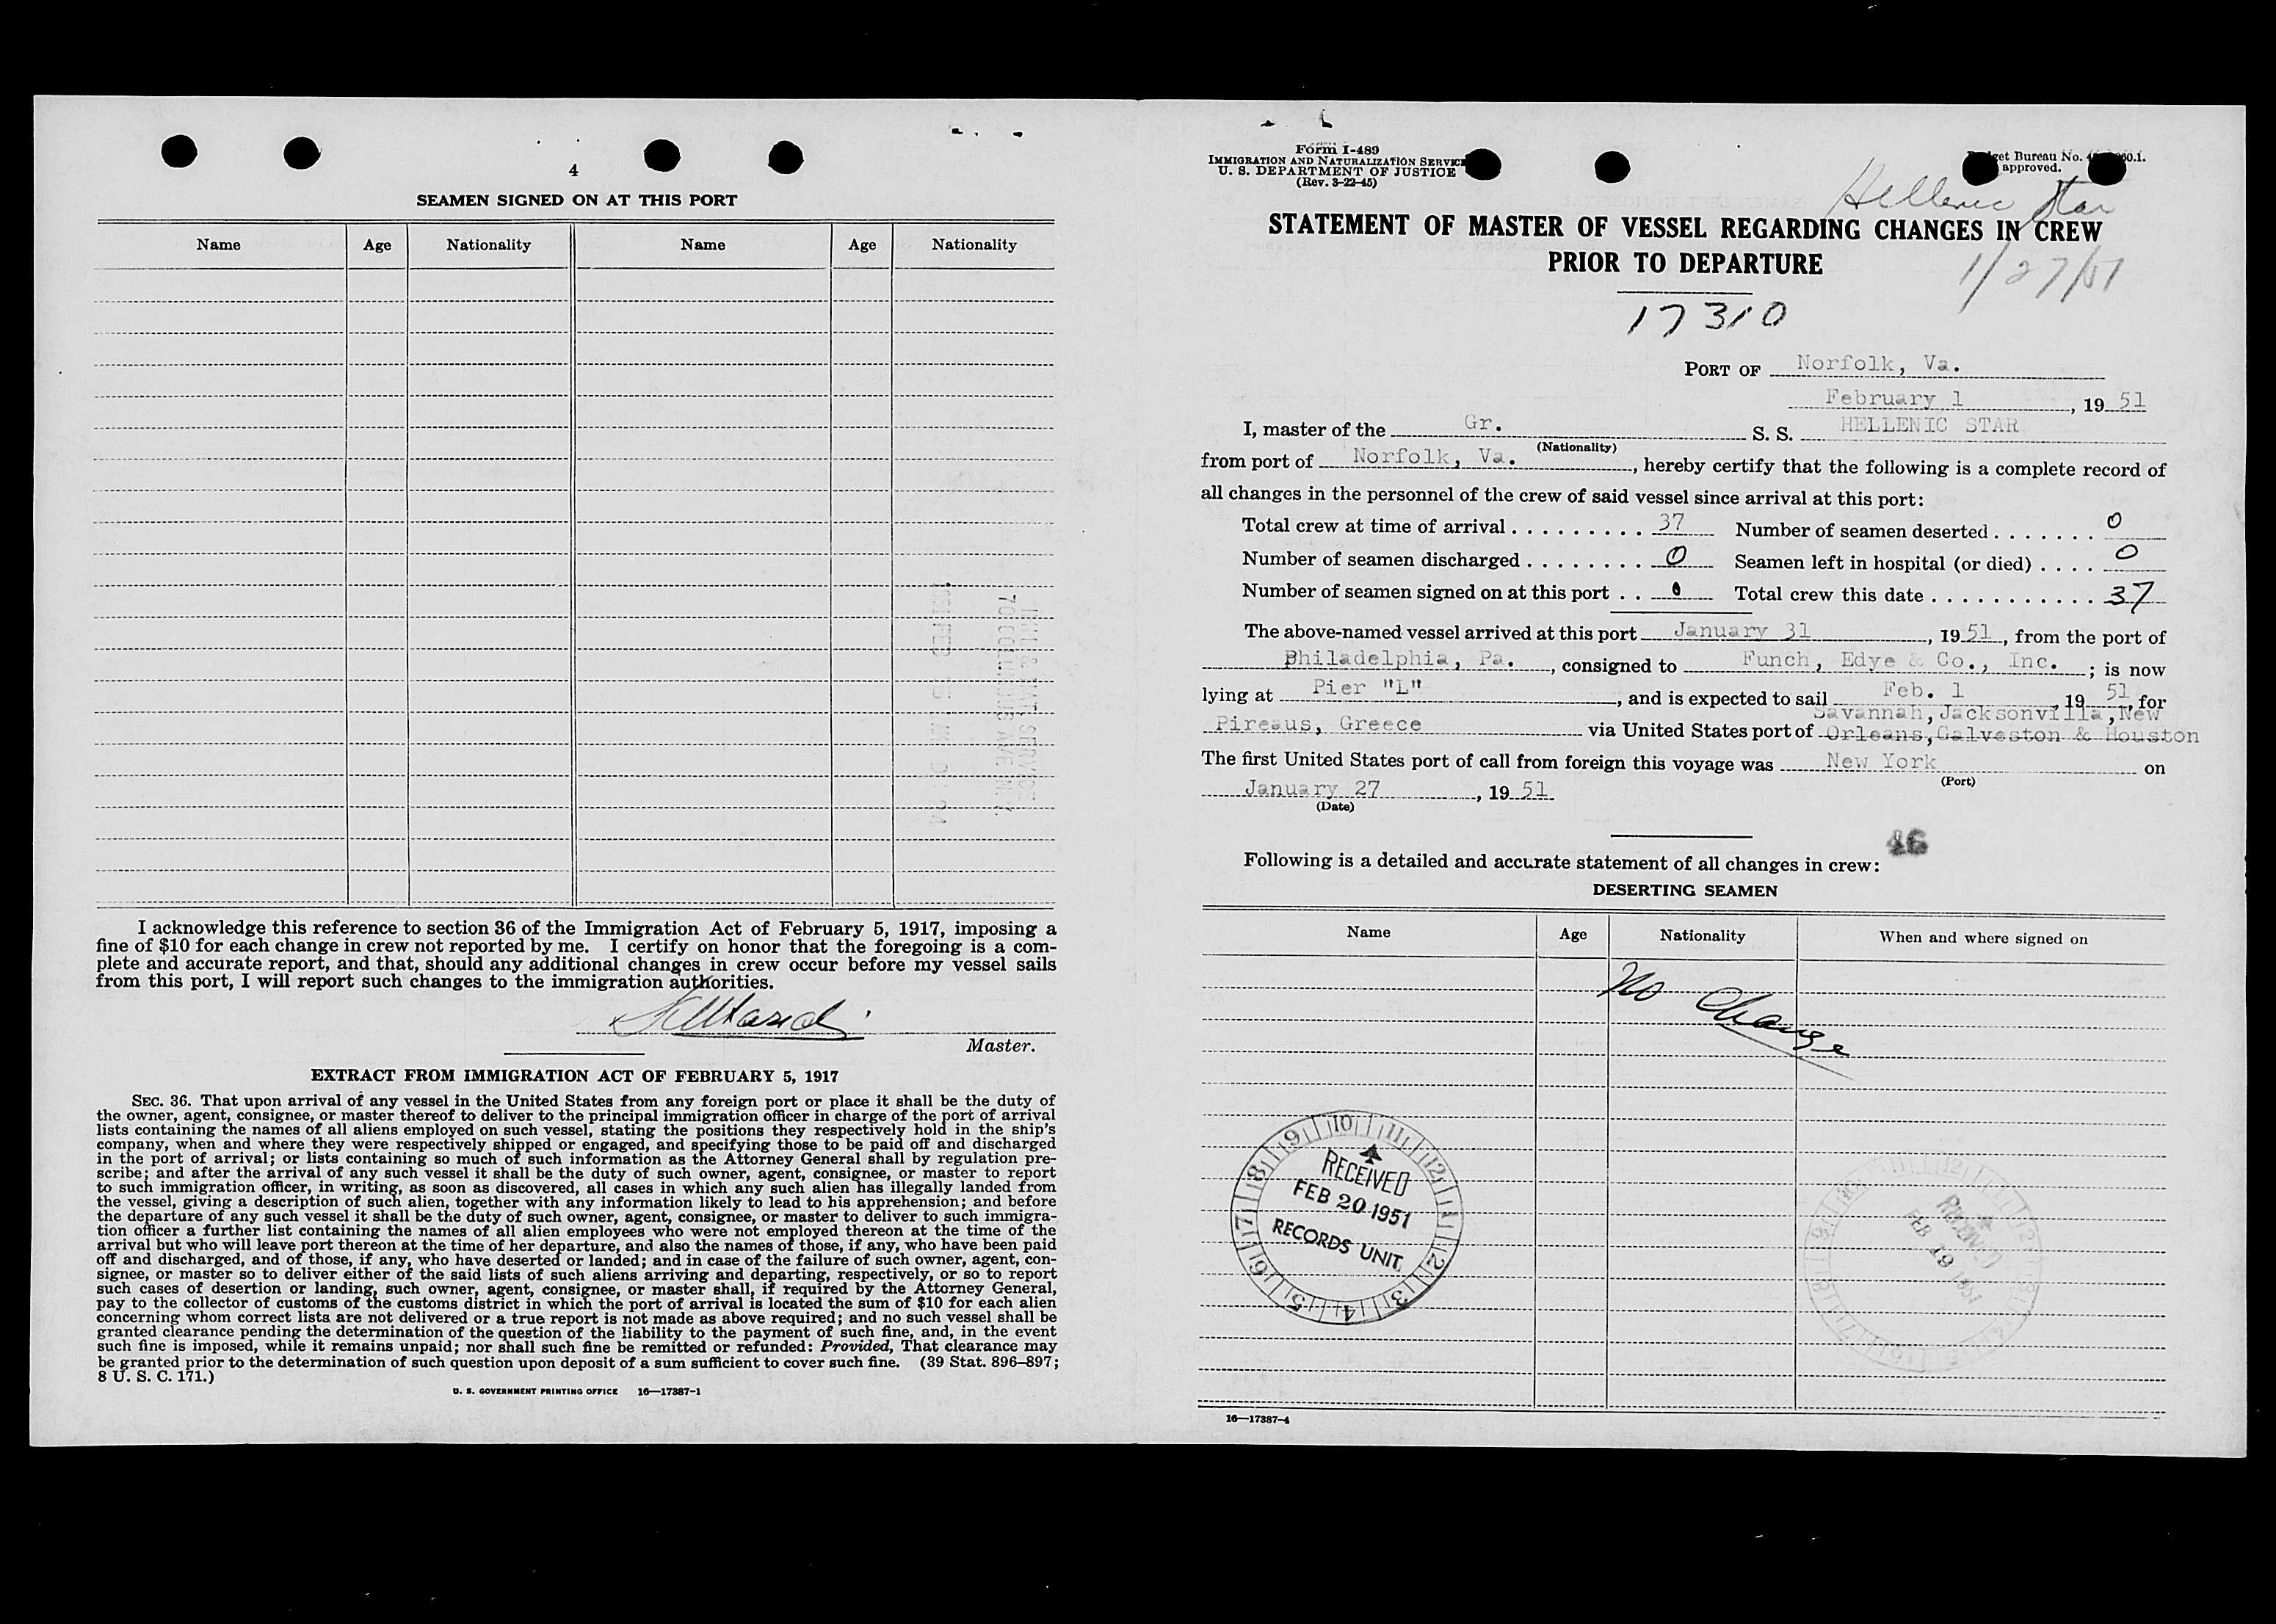 4
SEAMEN SIGNED ON AT THIS PORT
Name Age Nationality Name Age Nationality
I acknowledge this reference to section 36 of the Immigration Act of February 5, 1917, imposing a
fine of $10 for each change in crew not reported by me. I certify on honor that the foregoing is a com-
plete and accurate report, and that, should any additional changes in crew occur before my vessel sails
from this port, I will report such changes to the immigration authorities.
Master.
EXTRACT FROM IMMIGRATION ACT OF FEBRUARY 5, 1917
SEC. 36. That upon arrival of any vessel in the United States from any foreign port or place it shall be the duty of
the owner, agent, consignee, or master thereof to deliver to the principal immigration officer in charge of the port of arrival
lists containing the names of all aliens employed on such vessel, stating the positions they respectively hold in the ship's
company, when and where they were respectively shipped or engaged, and specifying those to be paid off and discharged
in the port of arrival; or lists containing so much of such information as the Attorney General shall by regulation pre-
scribe; and after the arrival of any such vessel it shall be the duty of such owner, agent, consignee, or master to report
to such immigration officer, in writing, as soon as discovered, all cases in which any such alien has illegally landed from
the vessel, giving a description of such alien, together with any information likely to lead to his apprehension; and before
the departure of any such vessel it shall be the duty of such owner, agent, consignee, or master to deliver to such immigra-
tion officer a further list containing the names of all alien employees who were not employed thereon at the time of the
arrival but who will leave port thereon at the time of her departure, and also the names of those, if any, who have been paid
off and discharged, and of those, if any, who have deserted or landed; and in case of the failure of such owner, agent, con-
signee, or master so to deliver either of the said lists of such aliens arriving and departing, respectively, or so to report
such cases of desertion or landing, such owner, agent, consignee, or master shall, if required by the Attorney General,
pay to the collector of customs of the customs district in which the port of arrival is located the sum of $10 for each alien
concerning whom correct lists are not delivered or a true report is not made as above required; and no such vessel shall be
granted clearance pending the determination of the question of the liability to the payment of such fine, and, in the event
such fine is imposed, while it remains unpaid; nor shall such fine be remitted or refunded: Provided, That clearance may
be granted prior to the determination of such question upon deposit of a sum sufficient to cover such fine. (39 Stat. 896–897;
8 U. S. C. 171.)
U. S. GOVERNMENT PRINTING OFFICE 16—17387-1
Form I-489
IMMIGRATION AND NATURALIZATION SERVICE
U. S. DEPARTMENT OF JUSTICE
(Rev. 3-22-45)
Bureau No.
approved.
Hellenic Star
STATEMENT OF MASTER OF VESSEL REGARDING CHANGES IN CREW
PRIOR TO DEPARTURE
1/27/51
17310
PORT OF Norfolk, Va.
February 1, 1951
I, master of the Gr. S. S. HELLENIC STAR
(Nationality)
from port of Norfolk, Va., hereby certify that the following is a complete record of
all changes in the personnel of the crew of said vessel since arrival at this port:
Total crew at time of arrival . . . . . . . . . 37 Number of seamen deserted . . . . . . . 0
Number of seamen discharged . . . . . . . . 0 Seamen left in hospital (or died) . . . . 0
Number of seamen signed on at this port . . 0 Total crew this date . . . . . . . . . . . 37
The above-named vessel arrived at this port January 31, 1951, from the port of
Philadelphia, Pa., consigned to Funch, Edye & Co., Inc.; is now
lying at Pier "L", and is expected to sail Feb. 1 1951, for
Savannah, Jacksonvilla, New
Pireaus, Greece via United States port of Orleans, Galveston & Houston
The first United States port of call from foreign this voyage was New York on
(Port)
January 27, 1951
(Date)
46
Following is a detailed and accurate statement of all changes in crew:
DESERTING SEAMEN
Name Age Nationality When and where signed on
No Change
RECEIVED
FEB 20 1951
RECORDS UNIT
RECEIVED
FEB 19 1951
16—17387-4